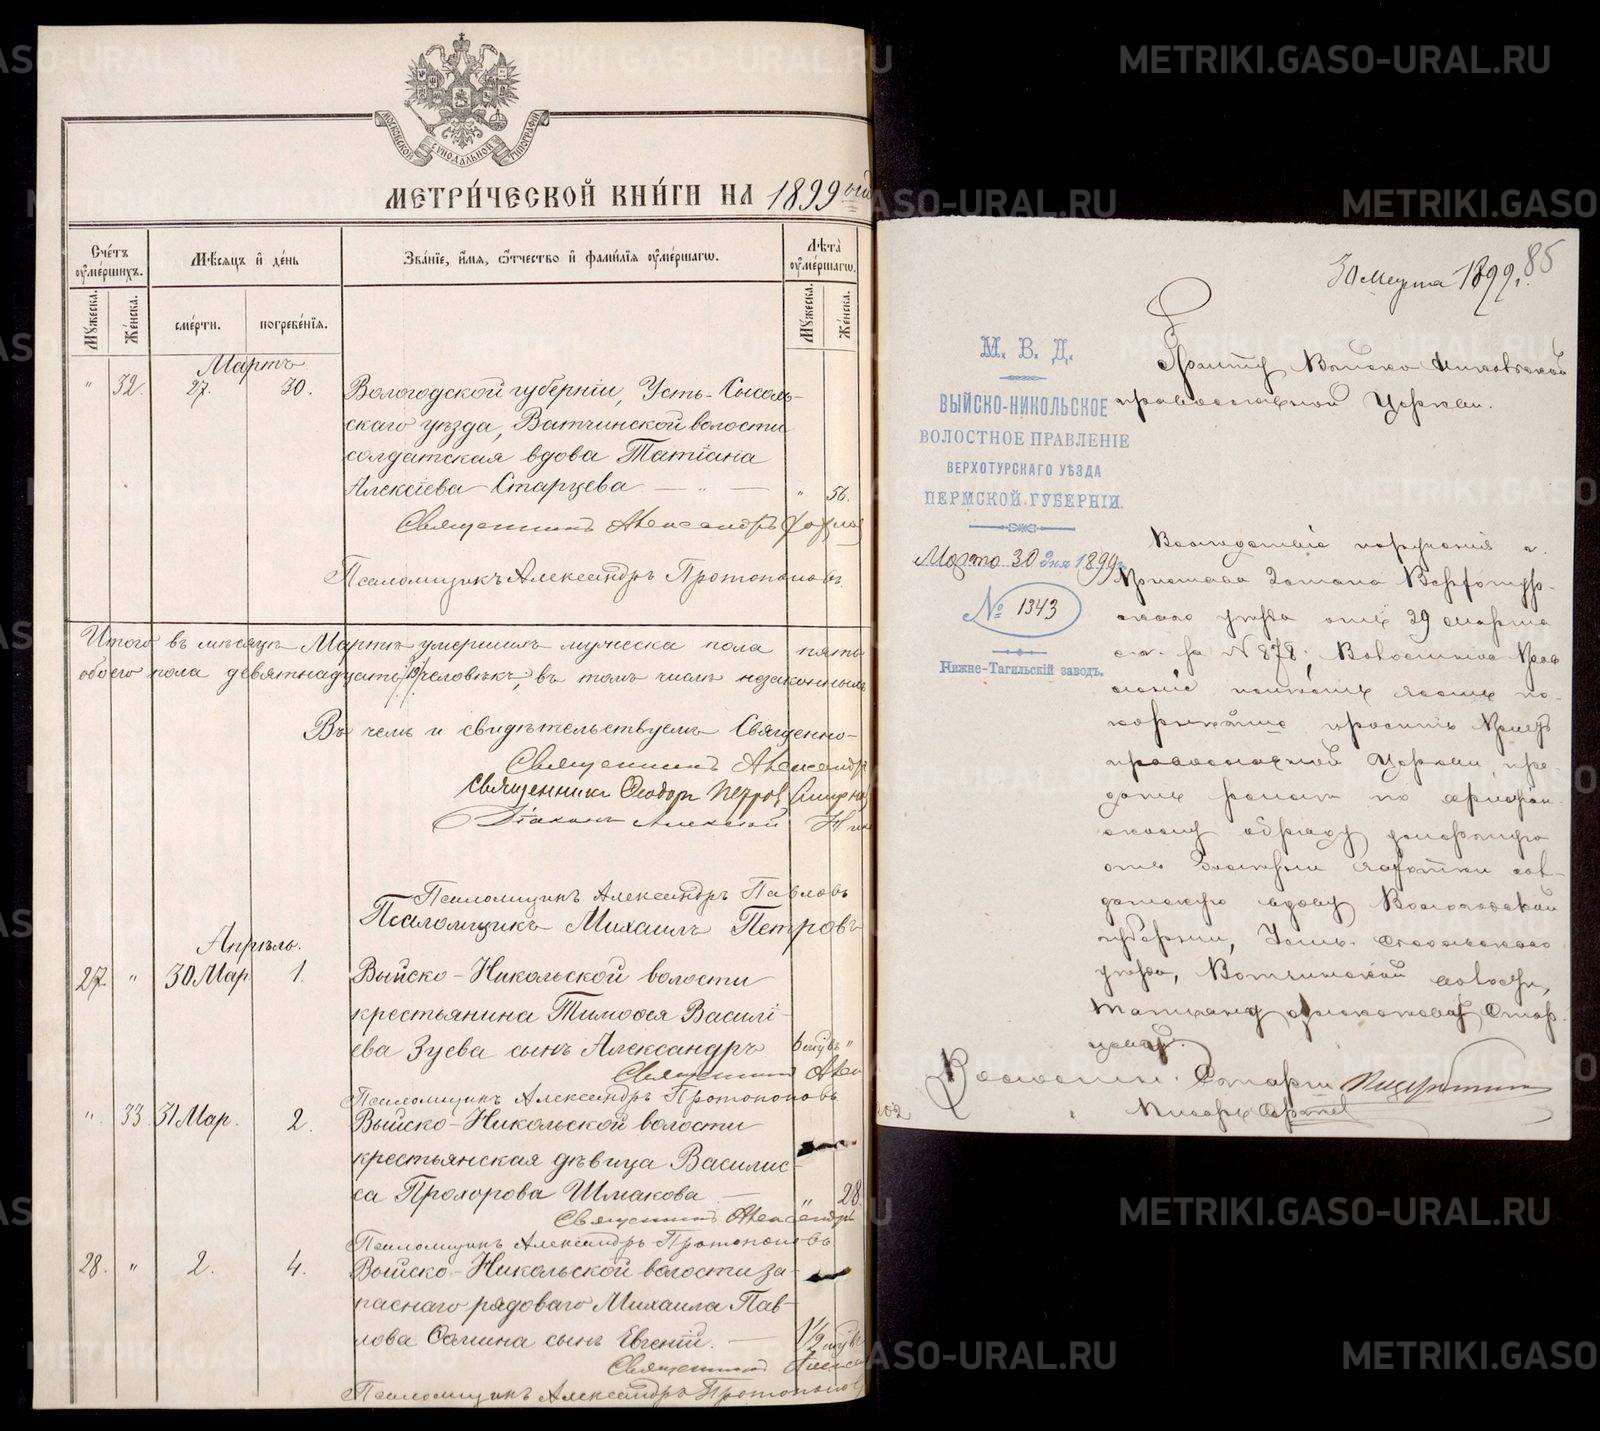 МОСКОВСКОЙ СѴНОДАЛЬНОЙ ТИПОГРАФІИ
МЕТРИ́ЧЕСКОЙ КНИ́ГИ НА 1899 ой
Сче́тъ оу҆ме́ршихъ.
Мѣ́сяцъ и҆ де́нь
Зва́нїе, и҆́мя, ѻ҆́тчество и҆ фами́лїя оу҆ме́ршагѡ.
Лѣ́та оу҆ме́ршагѡ.
Мꙋ́жеска.
Же́нска.
сме́рти.
погребе́нїѧ.
Мꙋ́жеска.
Же́нска.
Мартъ
" 32. 27. 30. Вологодской губерніи, Усть-Сысоль-
скаго уѣзда, Вотчинской волости
солдатская вдова Татіана
Алексіева Старцева — " — " 56.
Священникъ Александръ
Псаломщикъ Александръ Протопоповъ.
Итого въ мѣсяцѣ Мартѣ умершихъ мужеска пола пять
обоего пола девятнадцать (19) человѣкъ, въ томъ числѣ незаконныхъ
Въ чемъ и свидѣтельствуемъ Священно-
Священникъ Александръ
Священникъ Ѳеодоръ Петровъ Смирнов
Діаконъ Алексій
Псаломщикъ Александръ Павловъ
Псаломщикъ Михаилъ Петровъ
Апрѣль.
27. " 30 Мар 1. Выйско-Никольской волости
крестьянина Тимоѳея Василі-
ева Зуева сынъ Александръ 6 "
Священникъ Алек
Псаломщикъ Александръ Протопоповъ
" 33 31 Мар. 2. Выйско-Никольской волости
крестьянская дѣвица Василис-
са Прохорова Шмакова — " 28
Священникъ Александръ
Псаломщикъ Александръ Протопоповъ
28. " 2. 4. Выйско-Никольской волости за-
паснаго рядоваго Михаила Пав-
лова Сомина сынъ Евгеній. — 1/2
Священникъ Алекса
Псаломщикъ Александръ Протопопов
85
30 Марта 1899 г.
М. В. Д.
ВЫЙСКО-НИКОЛЬСКОЕ
ВОЛОСТНОЕ ПРАВЛЕНІЕ
ВЕРХОТУРСКАГО УѢЗДА
ПЕРМСКОЙ ГУБЕРНІИ.
Марта 30 дня 1899 г.
№ 1343
Нижне-Тагильскій заводъ.
Причту Выйско Никольской
православной Церкви.
Вслѣдствіе порученія г.
Пристава Верхотур-
скаго уѣзда отъ 29 марта
с.г. за № 878, Волостное Прав
леніе
просить Причтъ
православной Церкви, пре-
дать землѣ по христіан-
скому обряду умершую
отъ чахотки сол-
датскую вдову Вологодской
губерніи, Усть-Сысольскаго
уѣзда, Вотчинской волости,
Татьяну Алексѣеву Стар-
цеву.
Волостн. Старш.
Писарь
METRIKI.GASO-URAL.RU